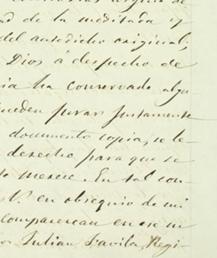 ad de la meditada y
del antedicho original,
Dios á despecho de
ia ha conservado algu
ueden jurar justamente
documento copia, se le
derecho para que se
to merece. En tal con
V. en obsequio de mi
comparezcan en ese
Julian Davila, Regi-